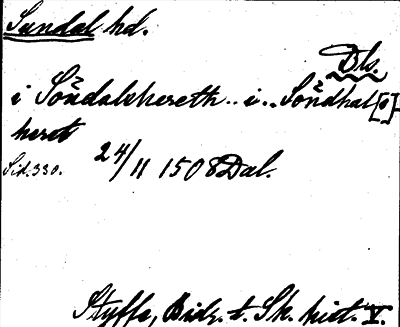 Sundal hd.
Dls.
i Söndalshereth .. i .. Söndhal[s]-
heret
Sid. 330. 24/11 1508 Dal.
Styffe, Bidr. t. Sk. hist. V.